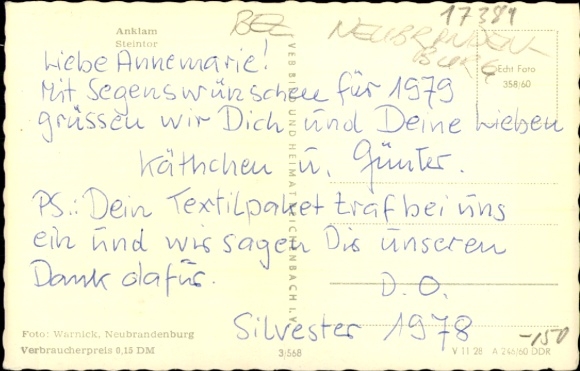 Anklam
Steintor
BEZ NEUBRANDEN-
BURG
17381
Echt Foto
358/60
Liebe Annemarie!
Mit Segenswünschen für 1979
grüssen wir Dich und Deine Lieben
Käthchen u. Günter.
PS.: Dein Textilpaket traf bei uns
ein und wir sagen Dir unseren
Dank dafür. D.O.
Silvester 1978
-150
VEB BILD UND HEIMAT REICHENBACH I. V.
Foto: Warnick, Neubrandenburg
Verbraucherpreis 0,15 DM
3/568
V 11 28 A 246/60 DDR